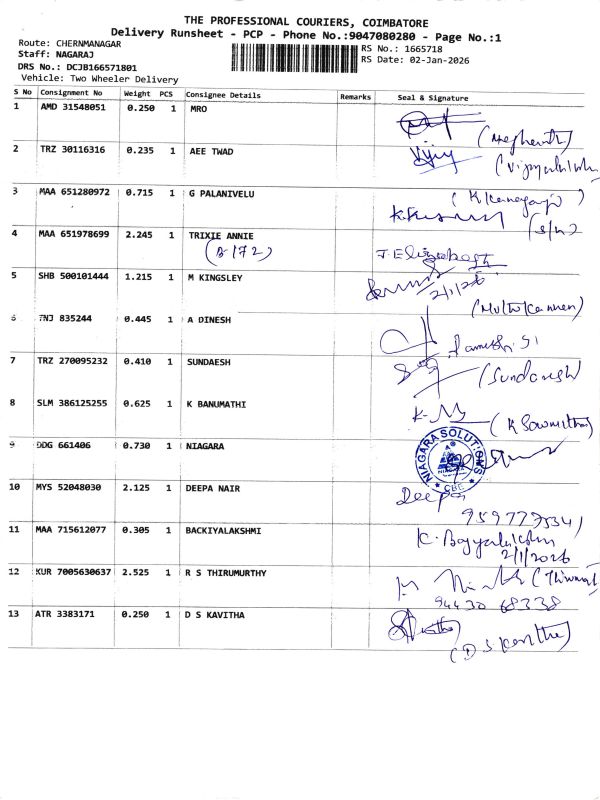 THE PROFESSIONAL COURIERS, COIMBATORE
Delivery Runsheet - PCP - Phone No.:9047080280 - Page No.:1
Route: CHERNMANAGAR
RS No.: 1665718
Staff: NAGARAJ
RS Date: 02-Jan-2026
DRS No.: DCJB166571801
Vehicle: Two Wheeler Delivery
S No Consignment No Weight PCS Consignee Details Remarks Seal & Signature
1 AMD 31548051 0.250 1 MRO
2 TRZ 30116316 0.235 1 AEE TWAD
3 MAA 651280972 0.715 1 G PALANIVELU
(S/W)
4 MAA 651978699 2.245 1 TRIXIE ANNIE
(B/72)
5 SHB 500101444 1.215 1 M KINGSLEY
2/1/26
6 TNJ 835244 0.445 1 A DINESH
7 TRZ 270095232 0.410 1 SUNDAESH
(Sundaresh)
8 SLM 386125255 0.625 1 K BANUMATHI
(K Sowmitha)
9 DDG 661406 0.730 1 NIAGARA
NIAGARA SOLUTIONS
CBE
10 MYS 52048030 2.125 1 DEEPA NAIR
Deepa
11 MAA 715612077 0.305 1 BACKIYALAKSHMI
2/1/2026
12 KUR 7005630637 2.525 1 R S THIRUMURTHY
94430 68338
13 ATR 3383171 0.250 1 D S KAVITHA
(D S Kavitha)